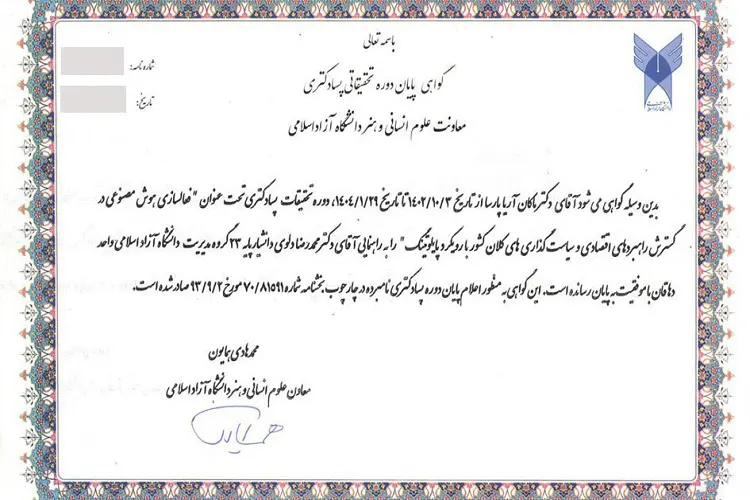 باسمه تعالی
شماره نامه:
گواهی پایان دوره تحقیقاتی پسادکتری
تاریخ:
معاونت علوم انسانی و هنر دانشگاه آزاد اسلامی
بدین وسیله گواهی می شود آقای دکتر ماکان آریا پارسا از تاریخ ۱۴۰۲/۱۰/۳ تا تاریخ ۱۴۰۴/۱/۲۹، دوره تحقیقات پسادکتری تحت عنوان " فعالسازی هوش مصنوعی در
گسترش راهبردهای اقتصادی و سیاست گذاری های کلان کشور با رویکرد پایلوتینگ" را به راهنمایی آقای دکتر محمدرضا دلوی دانشیار پایه ۲۳ گروه مدیریت دانشگاه آزاد اسلامی واحد
دهاقان با موفقیت به پایان رسانده است. این گواهی به منظور اعلام پایان دوره پسادکتری نامبرده در چارچوب بخشنامه شماره ۷۰/۸۱۵۹۱ مورخ ۹۳/۹/۲ صادر شده است.
محمدهادی همایون
معاون علوم انسانی و هنر دانشگاه آزاد اسلامی